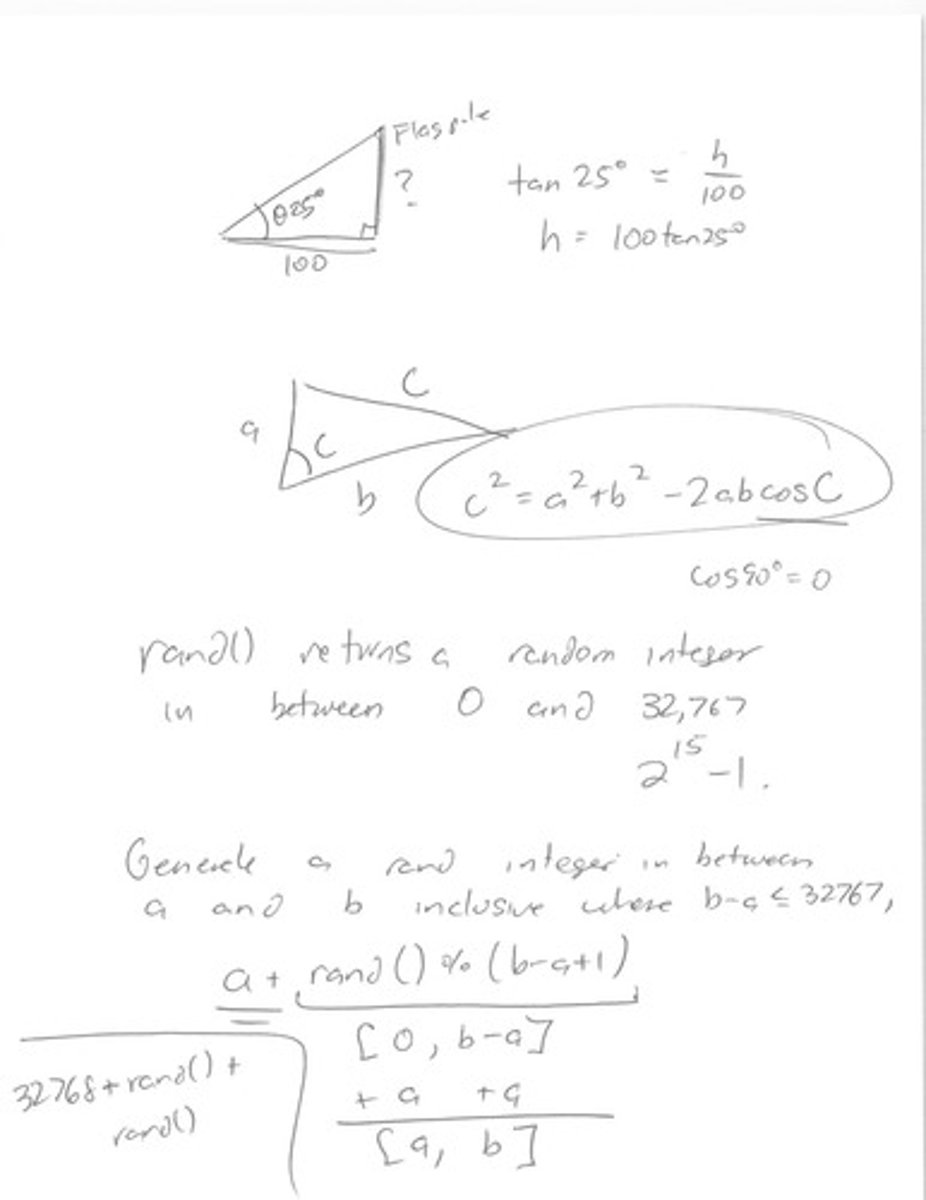 Flagpole
?
θ 25°
100
tan 25° = h/100
h = 100 tan 25°
c
a
C
b
c² = a² + b² - 2ab cos C
cos 90° = 0
rand() returns a random integer
in between 0 and 32,767
2^15 - 1.
Generate a rand integer in between
a and b inclusive where b-a ≤ 32767,
a + rand() % (b-a+1)
[0, b-a]
+ a +a
[a, b]
32768 + rand() +
rand()